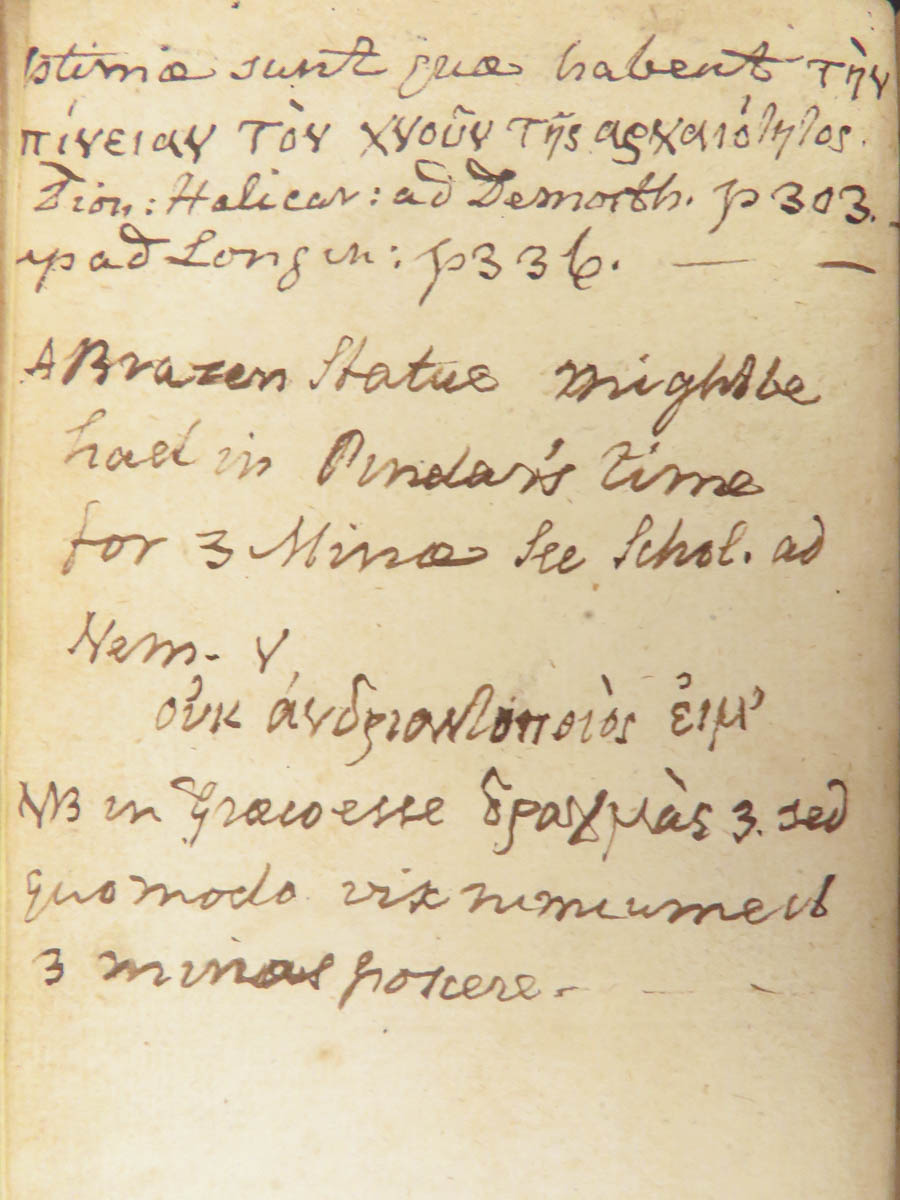 ptimæ sunt quæ habent τὴν
πίνειαν τὸν χνοῦν τῆς αρχαιότητος.
Dion: Halicar: ad Demosth. p 303.
apad Longin: p 336. — —
A Brazen Statue might be
had in Pindar's time
for 3 Minæ See Schol. ad
Nem. V
οὐκ ἀνδριαντοποιὸς ἐιμ'
NB in Græco esse δραχμὰς 3. sed
quomodo vix nimium est
3 minas poscere. — —